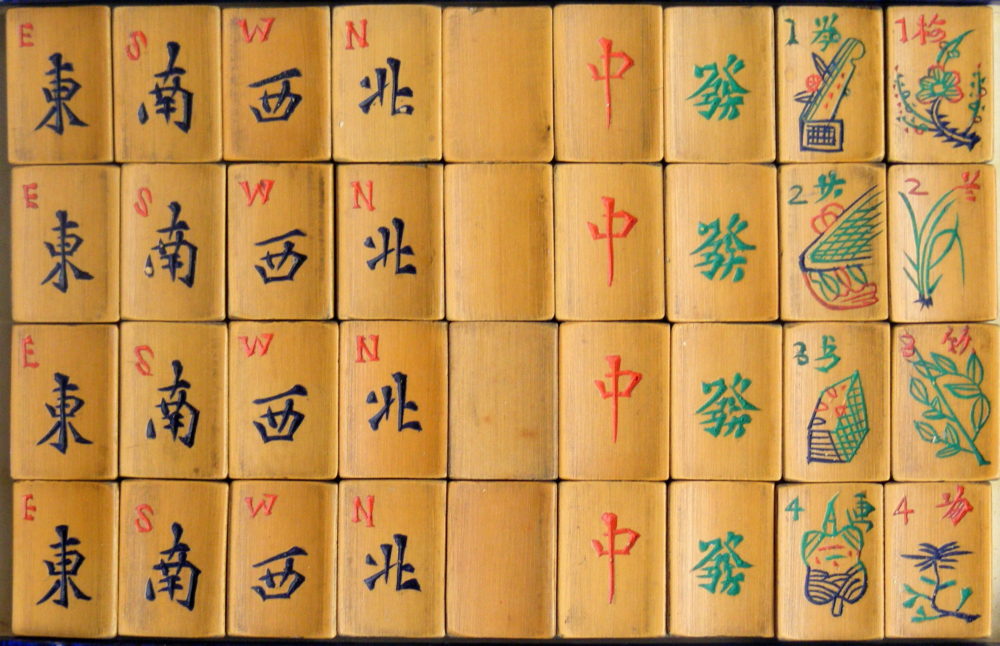 E 東 S 南 W 西 N 北 中 發 1 1 梅
E 東 S 南 W 西 N 北 中 發 2 2
E 東 S 南 W 西 N 北 中 發 3 3 竹
E 東 S 南 W 西 N 北 中 發 4 画 4